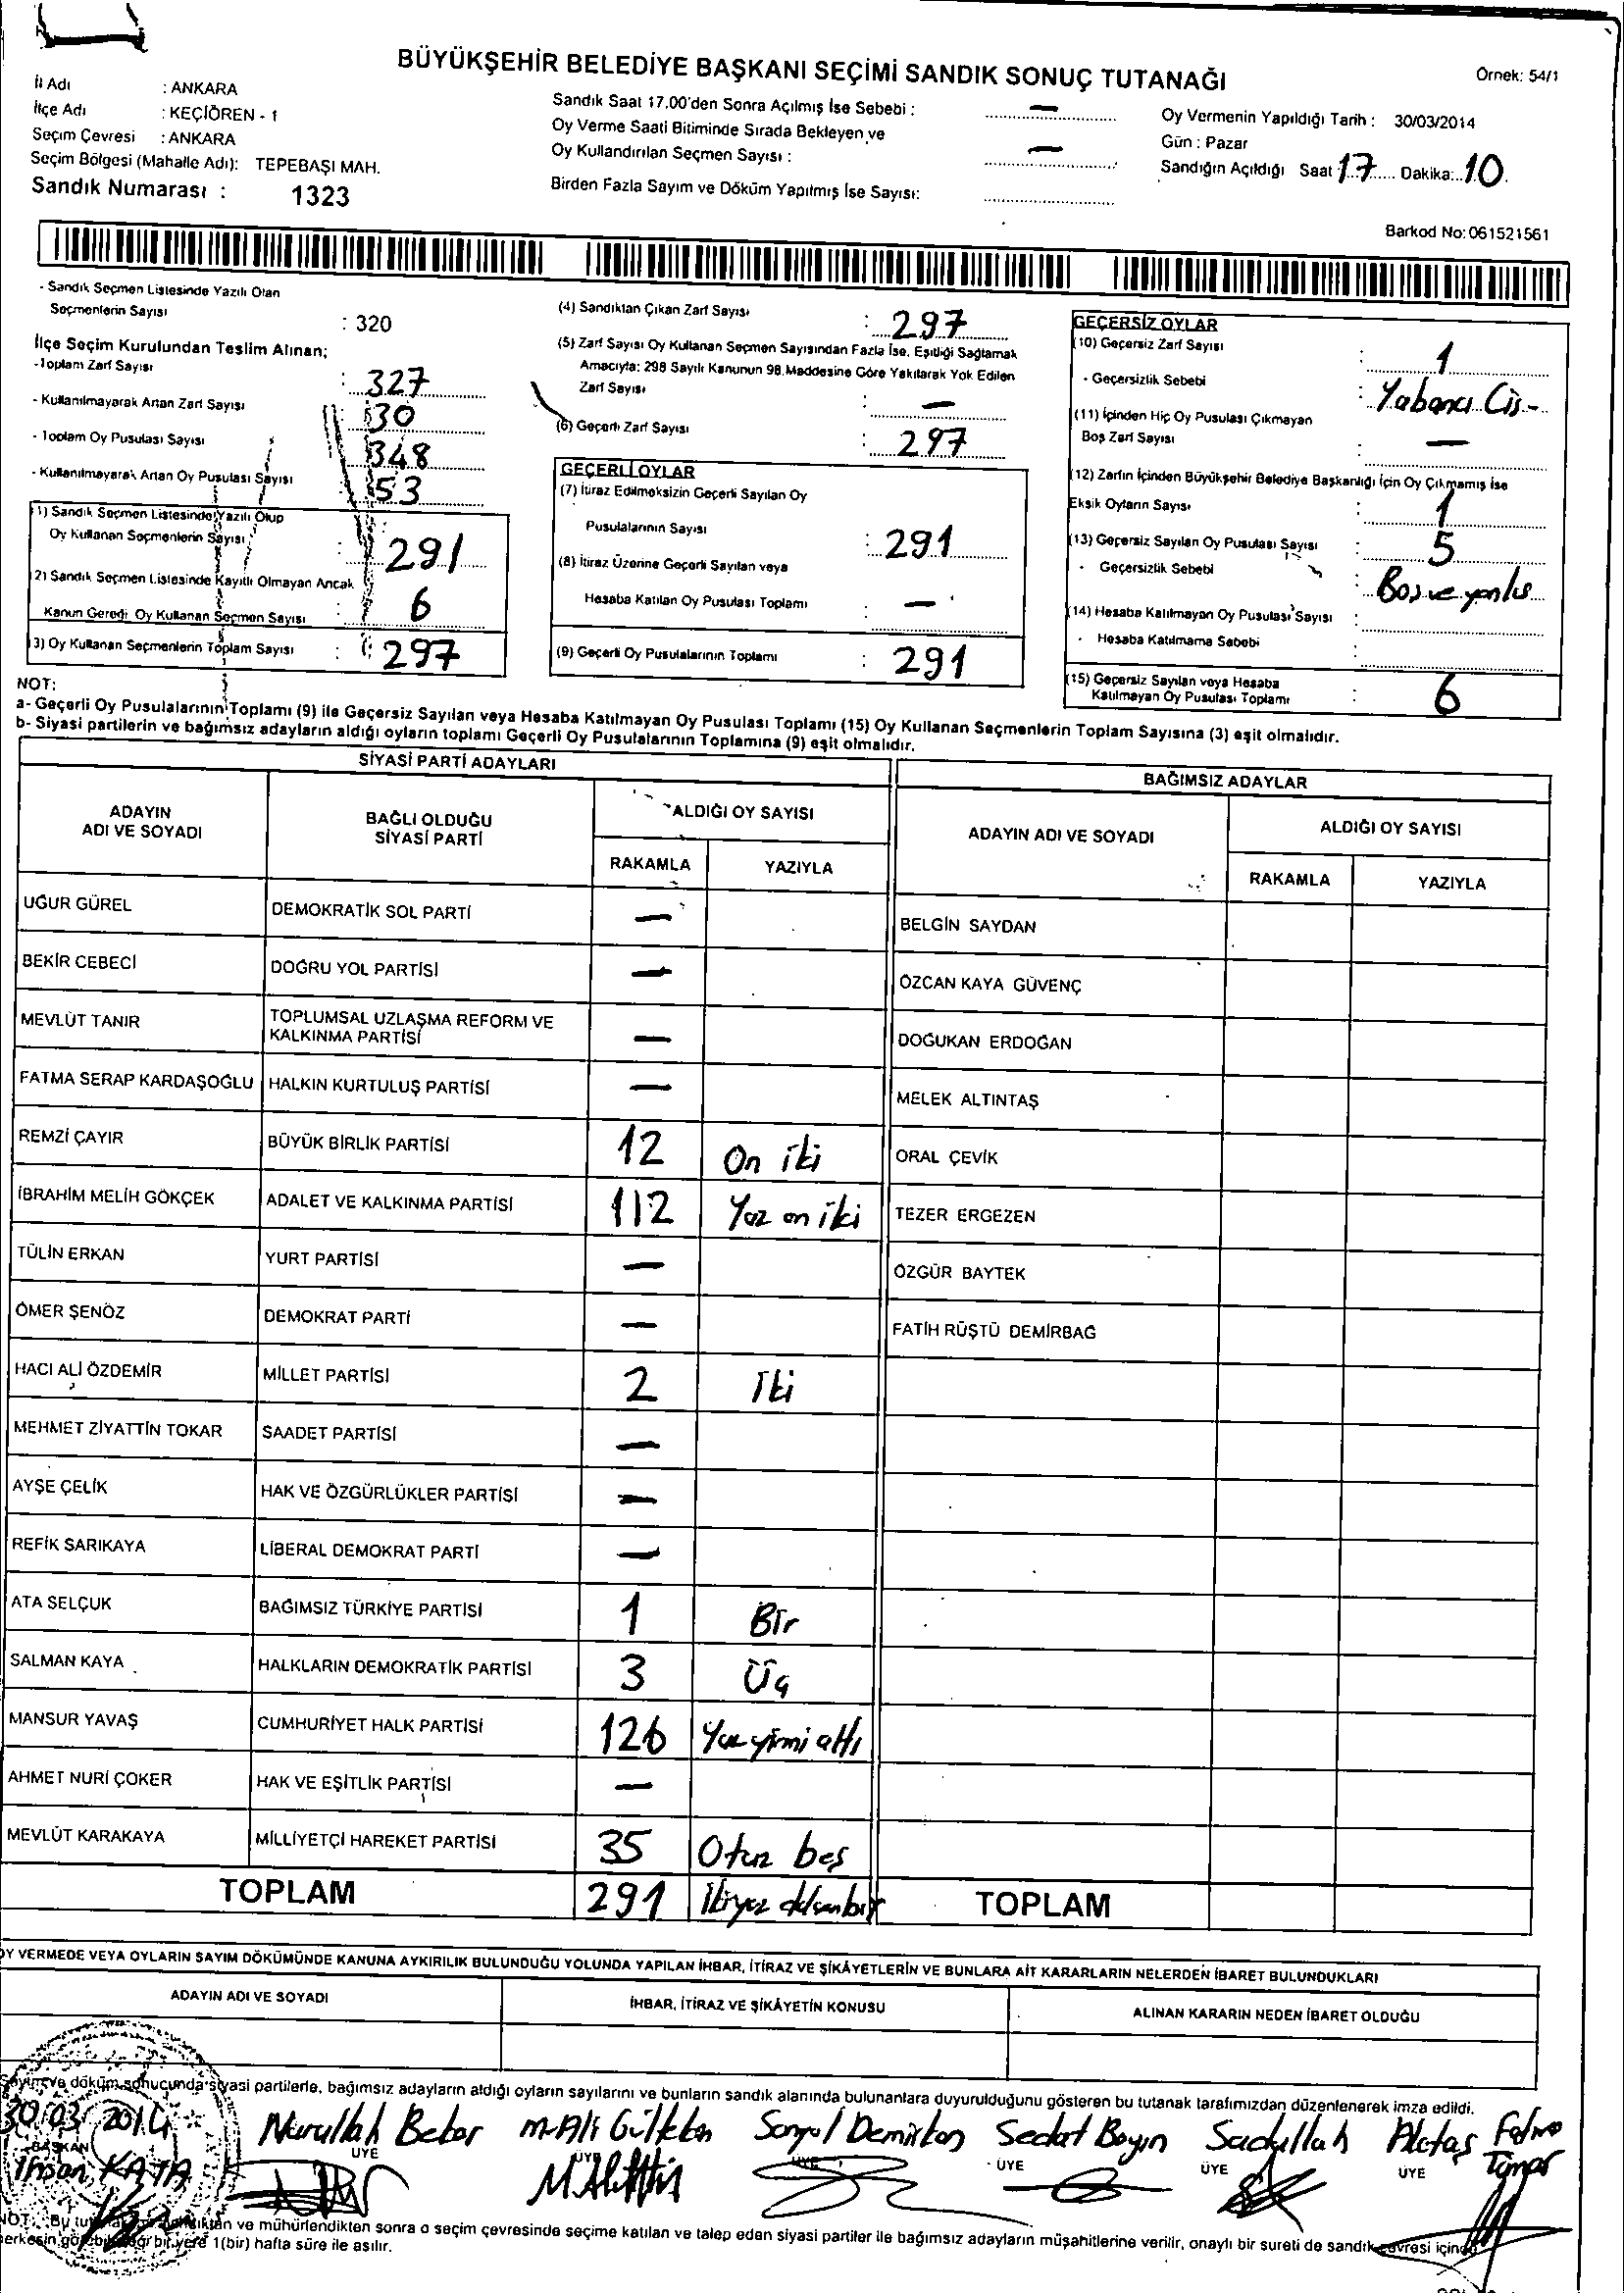 BÜYÜKŞEHİR BELEDİYE BAŞKANI SEÇİMİ SANDIK SONUÇ TUTANAĞI
Örnek: 54/1
İl Adı : ANKARA
İlçe Adı : KEÇİÖREN - 1
Seçim Çevresi : ANKARA
Seçim Bölgesi (Mahalle Adı): TEPEBAŞI MAH.
Sandık Numarası : 1323
Sandık Saat 17.00'den Sonra Açılmış İse Sebebi : —
Oy Verme Saati Bitiminde Sırada Bekleyen ve
Oy Kullandırılan Seçmen Sayısı : —
Birden Fazla Sayım ve Döküm Yapılmış İse Sayısı:
Oy Vermenin Yapıldığı Tarih : 30/03/2014
Gün : Pazar
Sandığın Açıldığı Saat 17 Dakika: 10
Barkod No: 061521561
- Sandık Seçmen Listesinde Yazılı Olan
Seçmenlerin Sayısı : 320
İlçe Seçim Kurulundan Teslim Alınan;
-Toplam Zarf Sayısı : 327
- Kullanılmayarak Artan Zarf Sayısı : 30
- Toplam Oy Pusulası Sayısı : 348
- Kullanılmayarak Artan Oy Pusulası Sayısı : 53
(1) Sandık Seçmen Listesinde Yazılı Olup
Oy Kullanan Seçmenlerin Sayısı : 291
(2) Sandık Seçmen Listesinde Kayıtlı Olmayan Ancak
Kanun Gereği Oy Kullanan Seçmen Sayısı : 6
(3) Oy Kullanan Seçmenlerin Toplam Sayısı : 297
(4) Sandıktan Çıkan Zarf Sayısı : 297
(5) Zarf Sayısı Oy Kullanan Seçmen Sayısından Fazla İse, Eşitliği Sağlamak
Amacıyla: 298 Sayılı Kanunun 98.Maddesine Göre Yakılarak Yok Edilen
Zarf Sayısı : —
(6) Geçerli Zarf Sayısı : 297
GEÇERLİ OYLAR
(7) İtiraz Edilmeksizin Geçerli Sayılan Oy
Pusulalarının Sayısı : 291
(8) İtiraz Üzerine Geçerli Sayılan veya
Hesaba Katılan Oy Pusulası Toplamı : —
(9) Geçerli Oy Pusulalarının Toplamı : 291
GEÇERSİZ OYLAR
(10) Geçersiz Zarf Sayısı : 1
- Geçersizlik Sebebi : Yabancı Cis-
(11) İçinden Hiç Oy Pusulası Çıkmayan
Boş Zarf Sayısı : —
(12) Zarfın İçinden Büyükşehir Belediye Başkanlığı İçin Oy Çıkmamış İse
Eksik Oyların Sayısı : 1
(13) Geçersiz Sayılan Oy Pusulası Sayısı : 5
- Geçersizlik Sebebi : Boş ve yanlış
(14) Hesaba Katılmayan Oy Pusulası Sayısı :
- Hesaba Katılmama Sebebi :
(15) Geçersiz Sayılan veya Hesaba
Katılmayan Oy Pusulası Toplamı : 6
NOT:
a- Geçerli Oy Pusulalarının Toplamı (9) ile Geçersiz Sayılan veya Hesaba Katılmayan Oy Pusulası Toplamı (15) Oy Kullanan Seçmenlerin Toplam Sayısına (3) eşit olmalıdır.
b- Siyasi partilerin ve bağımsız adayların aldığı oyların toplamı Geçerli Oy Pusulalarının Toplamına (9) eşit olmalıdır.
SİYASİ PARTİ ADAYLARI
BAĞIMSIZ ADAYLAR
ADAYIN
ADI VE SOYADI
BAĞLI OLDUĞU
SİYASİ PARTİ
ALDIĞI OY SAYISI
RAKAMLA YAZIYLA
ADAYIN ADI VE SOYADI
ALDIĞI OY SAYISI
RAKAMLA YAZIYLA
UĞUR GÜREL DEMOKRATİK SOL PARTİ — BELGİN SAYDAN
BEKİR CEBECİ DOĞRU YOL PARTİSİ — ÖZCAN KAYA GÜVENÇ
MEVLÜT TANIR TOPLUMSAL UZLAŞMA REFORM VE
KALKINMA PARTİSİ — DOĞUKAN ERDOĞAN
FATMA SERAP KARDAŞOĞLU HALKIN KURTULUŞ PARTİSİ — MELEK ALTINTAŞ
REMZİ ÇAYIR BÜYÜK BİRLİK PARTİSİ 12 On iki ORAL ÇEVİK
İBRAHİM MELİH GÖKÇEK ADALET VE KALKINMA PARTİSİ 112 Yüz on iki TEZER ERGEZEN
TÜLİN ERKAN YURT PARTİSİ — ÖZGÜR BAYTEK
ÖMER ŞENÖZ DEMOKRAT PARTİ — FATİH RÜŞTÜ DEMİRBAĞ
HACI ALİ ÖZDEMİR MİLLET PARTİSİ 2 İki
MEHMET ZİYATTİN TOKAR SAADET PARTİSİ —
AYŞE ÇELİK HAK VE ÖZGÜRLÜKLER PARTİSİ —
REFİK SARIKAYA LİBERAL DEMOKRAT PARTİ —
ATA SELÇUK BAĞIMSIZ TÜRKİYE PARTİSİ 1 Bir
SALMAN KAYA HALKLARIN DEMOKRATİK PARTİSİ 3 Üç
MANSUR YAVAŞ CUMHURİYET HALK PARTİSİ 126 Yüz yirmi altı
AHMET NURİ ÇOKER HAK VE EŞİTLİK PARTİSİ —
MEVLÜT KARAKAYA MİLLİYETÇİ HAREKET PARTİSİ 35 Otuz beş
TOPLAM 291 İkiyüz doksanbir TOPLAM
OY VERMEDE VEYA OYLARIN SAYIM DÖKÜMÜNDE KANUNA AYKIRILIK BULUNDUĞU YOLUNDA YAPILAN İHBAR, İTİRAZ VE ŞİKÂYETLERİN VE BUNLARA AİT KARARLARIN NELERDEN İBARET BULUNDUKLARI
ADAYIN ADI VE SOYADI İHBAR, İTİRAZ VE ŞİKÂYETİN KONUSU ALINAN KARARIN NEDEN İBARET OLDUĞU
Sayım ve döküm sonucunda siyasi partilerle, bağımsız adayların aldığı oyların sayılarını ve bunların sandık alanında bulunanlara duyurulduğunu gösteren bu tutanak tarafımızdan düzenlenerek imza edildi.
30/03/2014
Nurullah Beker M.Ali Gültekin Songül Demirkan Sedat Boyın Sadullah Aktaş Fatma
BAŞKAN ÜYE ÜYE ÜYE ÜYE ÜYE ÜYE
İhsan KAYA Tümer
NOT: Bu ve mühürlendikten sonra o seçim çevresinde seçime katılan ve talep eden siyasi partiler ile bağımsız adayların müşahitlerine verilir, onaylı bir sureti de sandık çevresi içinde
herkesin bir yere 1(bir) hafta süre ile asılır.